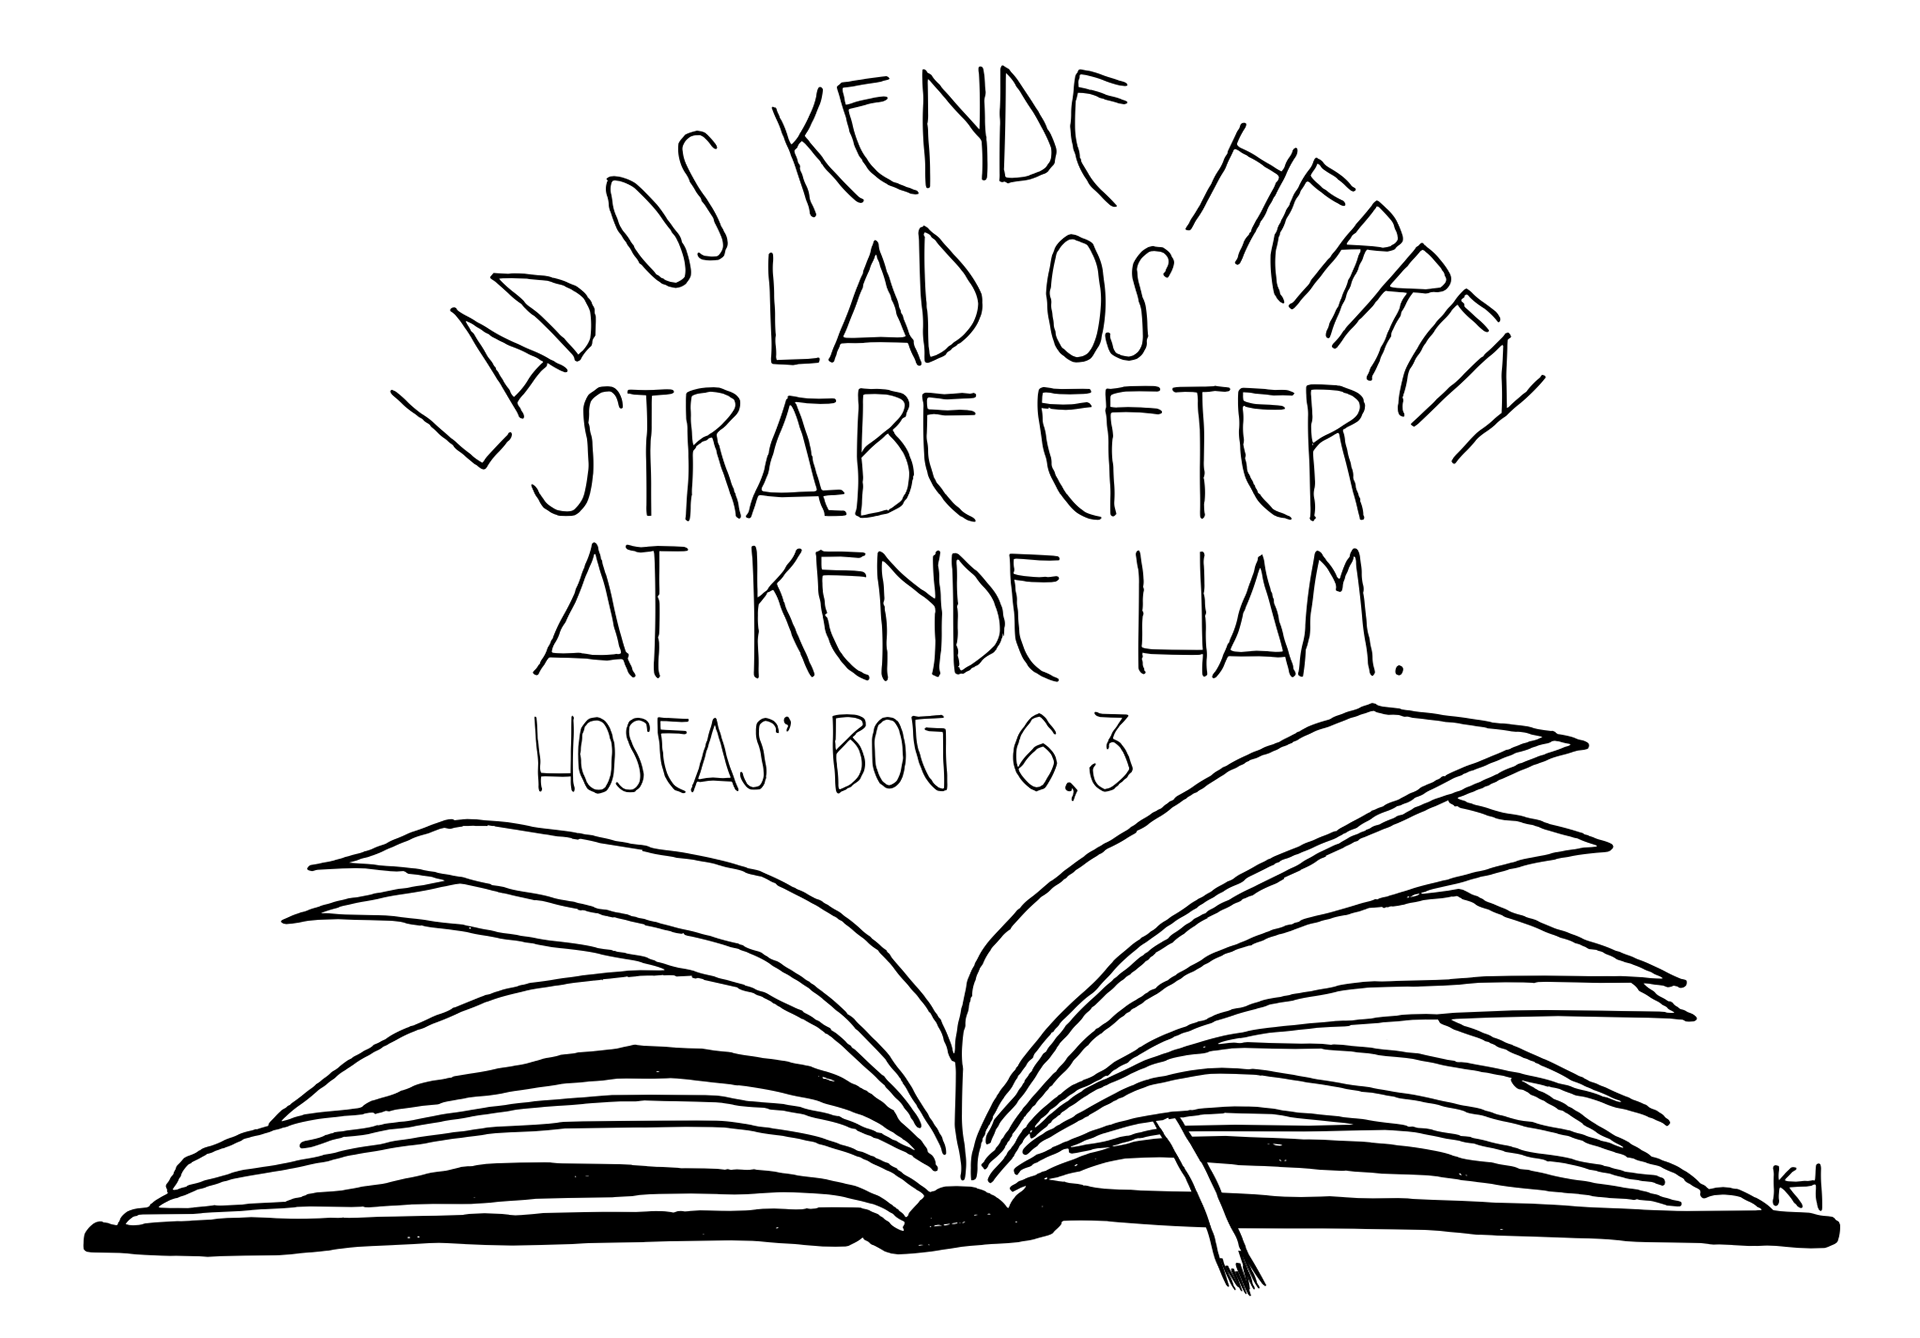 LAD OS KENDE HERREN
LAD OS
STRÆBE EFTER
AT KENDE HAM.
HOSEAS' BOG 6,3
KH